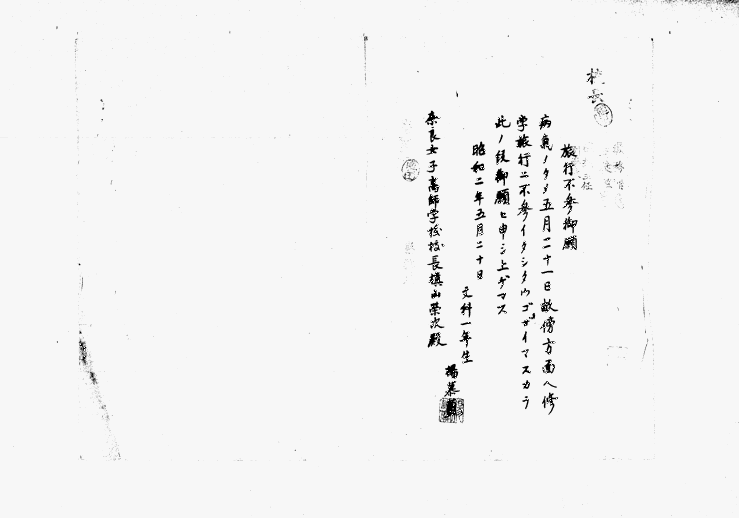 校長
旅行不参御願
病氣ノタメ五月二十一日畝傍方面ヘ修
学旅行ニ不参イタシタウゴザイマスカラ
此ノ段御願ヒ申シ上ゲマス
昭和二年五月二十日
文科一年生
楊慕
奈良女子高師学校校長槙山榮次殿